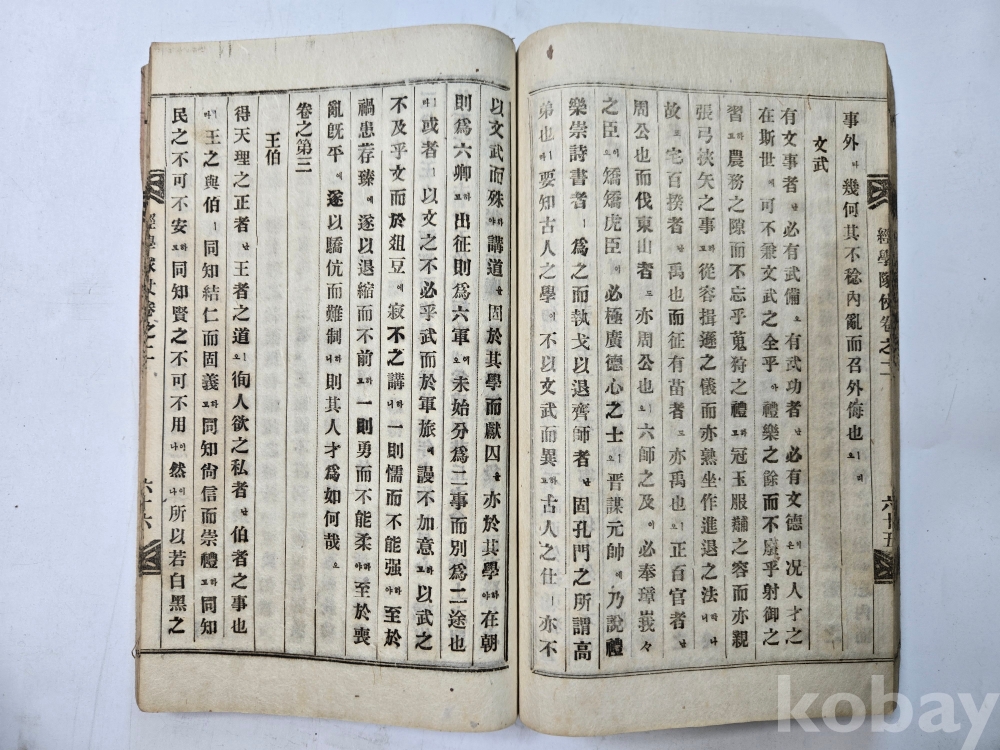 事外에幾何其不稔內亂而召外侮也ㅣ리오
文武
有文事者난必有武備오有武功者난必有文德은況人才之
在斯世에可不兼文武之全乎아禮樂之餘而不廢乎射御之
習하며農務之隙而不忘乎蒐狩之禮하고冠玉服黼之容而亦親
張弓挾矢之事하고從容揖遜之儀而亦熟坐作進退之法하나니라
故로宅百揆者난禹也而征有苗者도亦禹也오正百官者난
周公也而伐東山者도亦周公也ㅣ오六師之及이必奉璋峩々
之臣이오矯矯虎臣이必極廣德心之士ㅣ오晋謀元帥에乃說禮
樂崇詩書者ㅣ爲之而執戈以退齊師者난固孔門之所謂高
弟也ㅣ라要知古人之學이不以文武而異하고古人之仕ㅣ亦不
經學隊仗卷之二
六十五
以文武而殊하야講道를固於其學而獻囚를亦於其學하야在朝
則爲六卿하고出征則爲六軍이오未始分爲二事而別爲二途也
ㅣ라或者ㅣ以文之不必乎武而於軍旅에謾不加意하고以武之
不及乎文而於俎豆에寂不之講하니一則懦而不能强하야至於
禍患荐臻에遂以退縮而不前하고一則勇而不能柔하야至於喪
亂旣平에遂以驕伉而難制하니則其人才爲如何哉오
卷之第三
王伯
得天理之正者난王者之道오徇人欲之私者난伯者之事也
ㅣ라王之與伯ㅣ同知結仁而固義하고同知尙信而崇禮하고同知
民之不可不安하고同知賢之不可不用이나然이나所以若白黑之
六十六